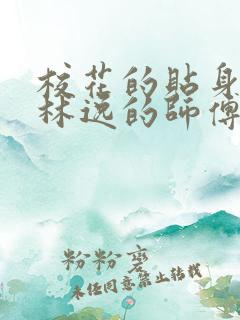 校花的貼身
林逸的師傅
粉粉砻
未经同意禁止转载